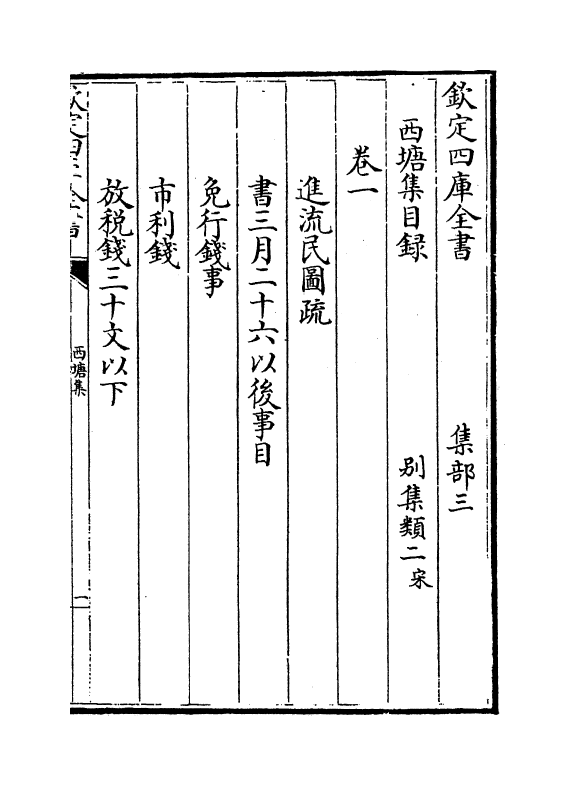 欽定四庫全書　集部三
西塘集目録　別集類二宋
卷一
進流民圖疏
書三月二十六以後事目
免行錢事
市利錢
放税錢三十文以下
欽定四庫全書
西塘集
一